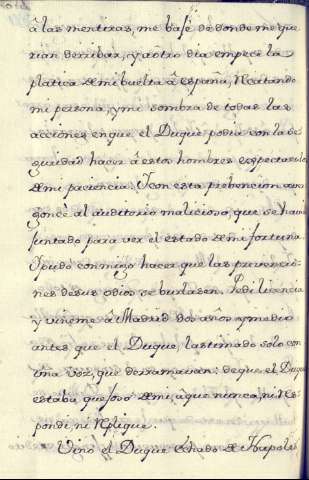 á las mentiras, me bajé de donde me que
rian derribar, y a otro dia empecé la
platica de mi buelta á España, recatando
mi persona, y mi sombra de todas las
acciones en que el Duque podia con la be
guidad hacer á estos hombres espectaculo
de mi paciencia. Y con esta prebencion aver
gonce al auditorio malicioso, que se havia
juntado para ver el estado de mi fortuna.
Y pudo conmigo hacer que las prevencio
nes de sus odios se burlasen. Pedi licencia
y vineme á Madrid dos años y medio
antes que el Duque, lastimado solo con
una voz, que derramavan: de que el Duque
estaba quejoso de mi, á que nunca, ni res
pondi, ni replique.
Vino el Duque echado de Napoles